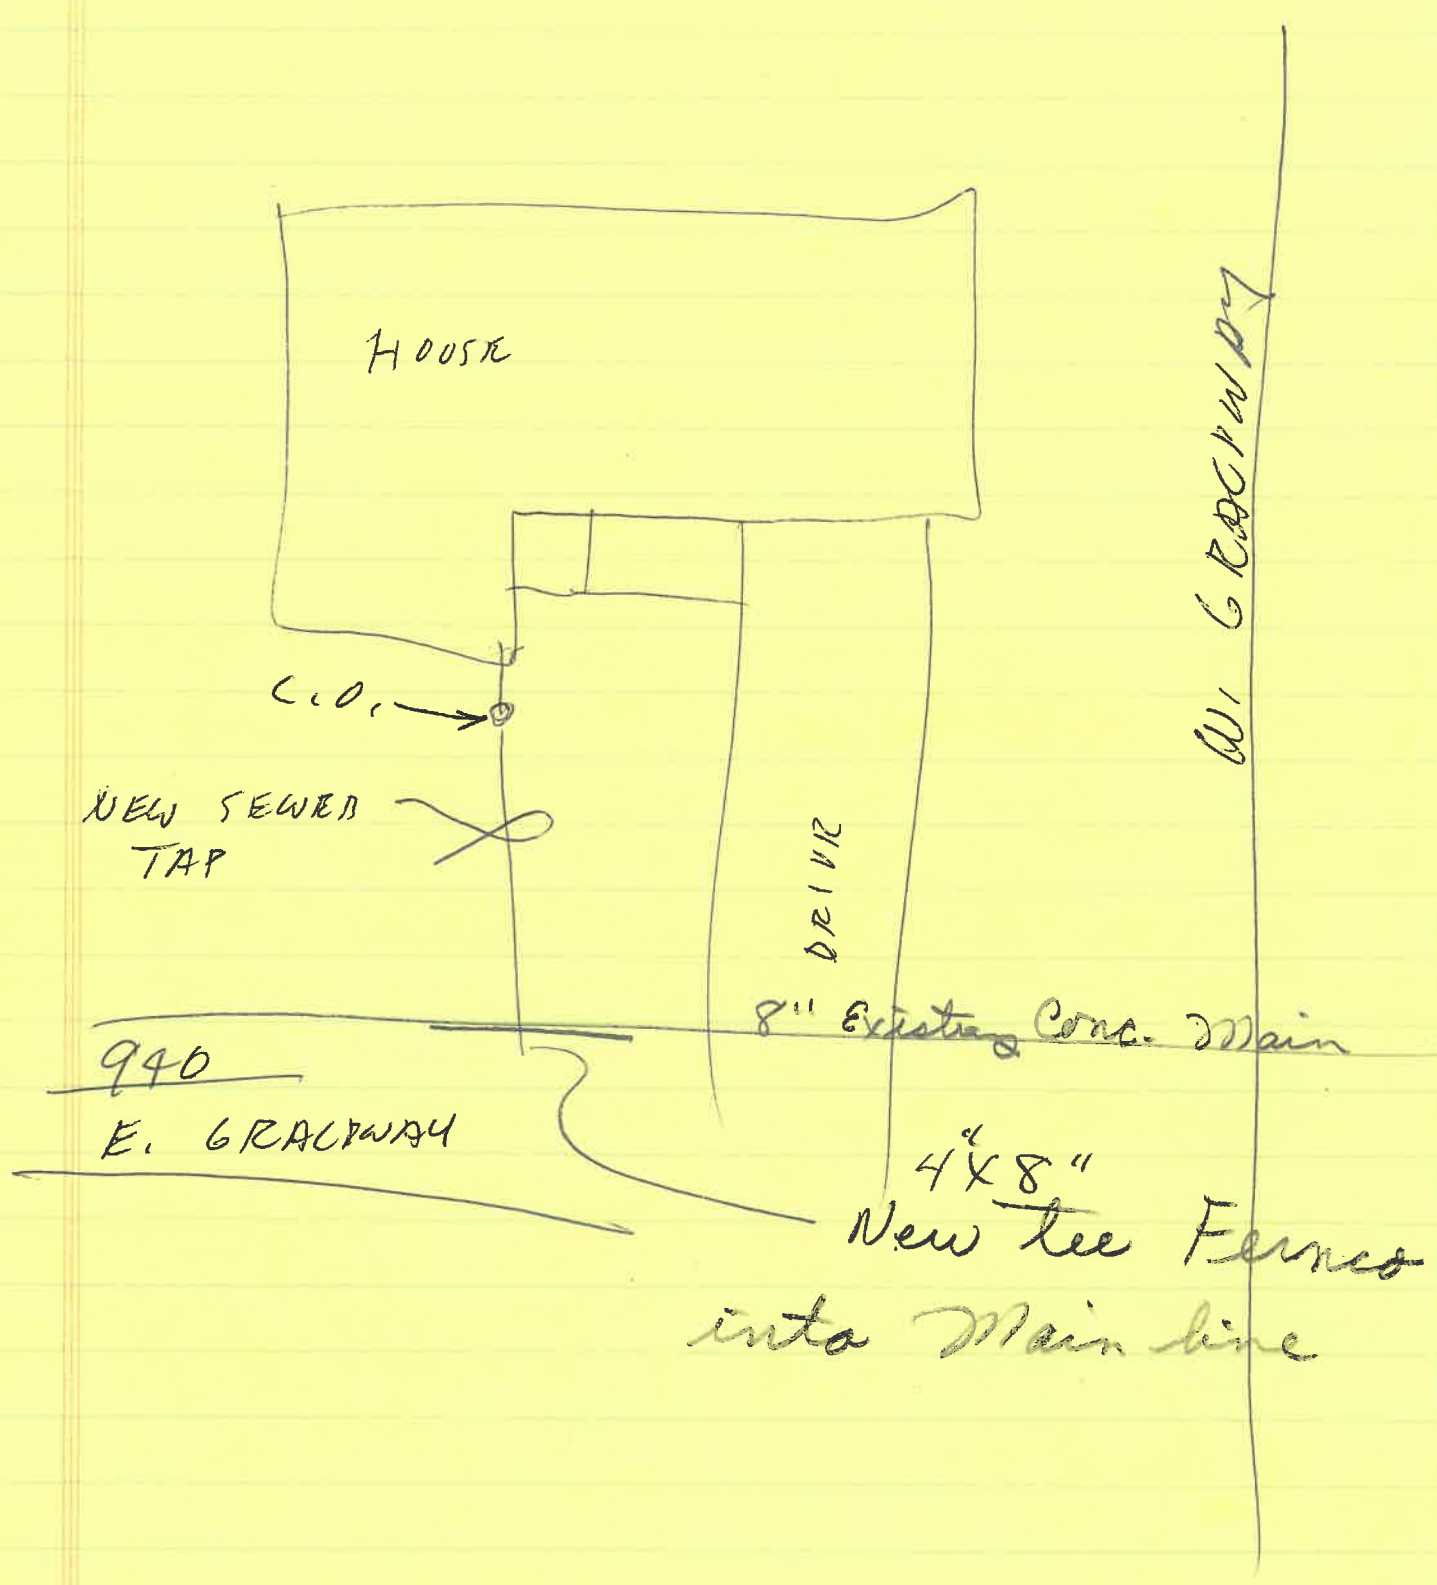 HOUSE
W. GRACEWAY
C.O.
NEW SEWER
TAP
DRIVE
8" Existing Conc. Main
940
E. GRACEWAY
4"X8"
New tee Fernco
into Main line